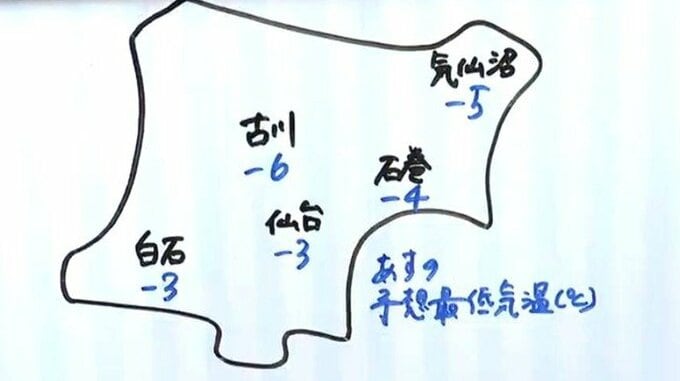 気仙沼
-5
古川
-6
石巻
-4
仙台
-3
白石
-3
あすの
予想最低気温(℃)